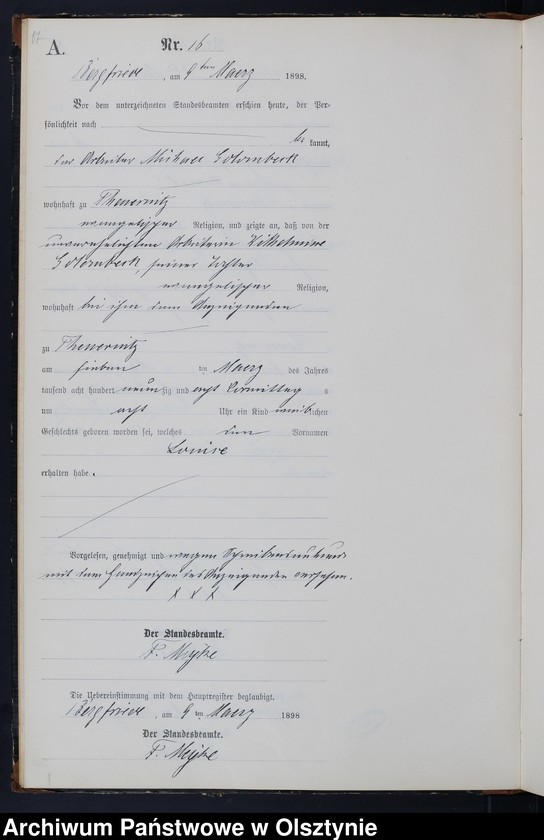 A.
Nr. 16
Bergfriede, am 9ten Maerz 1898.
Vor dem unterzeichneten Standesbeamten erschien heute, der Per-
sönlichkeit nach
bekannt,
der Arbeiter Michael
wohnhaft zu Thewernitz
evangelischer Religion, und zeigte an, daß von der
unverehelichten Arbeiterin Wilhelmine
seiner Tochter
evangelischer Religion,
wohnhaft bei ihm dem Anzeigenden
zu Thewernitz
am sieben ten Maerz des Jahres
tausend acht hundert neunzig und acht Vormittags
um acht Uhr ein Kind weiblichen
Geschlechts geboren worden sei, welches den Vornamen
Louise
erhalten habe.
Vorgelesen, genehmigt und wegen Schreibensunkunde
mit dem Handzeichen des Anzeigenden versehen.
X X X
Der Standesbeamte.
F.
Die Uebereinstimmung mit dem Hauptregister beglaubigt.
Bergfriede, am 9ten Maerz 1898
Der Standesbeamte.
F.
Archiwum Państwowe w Olsztynie